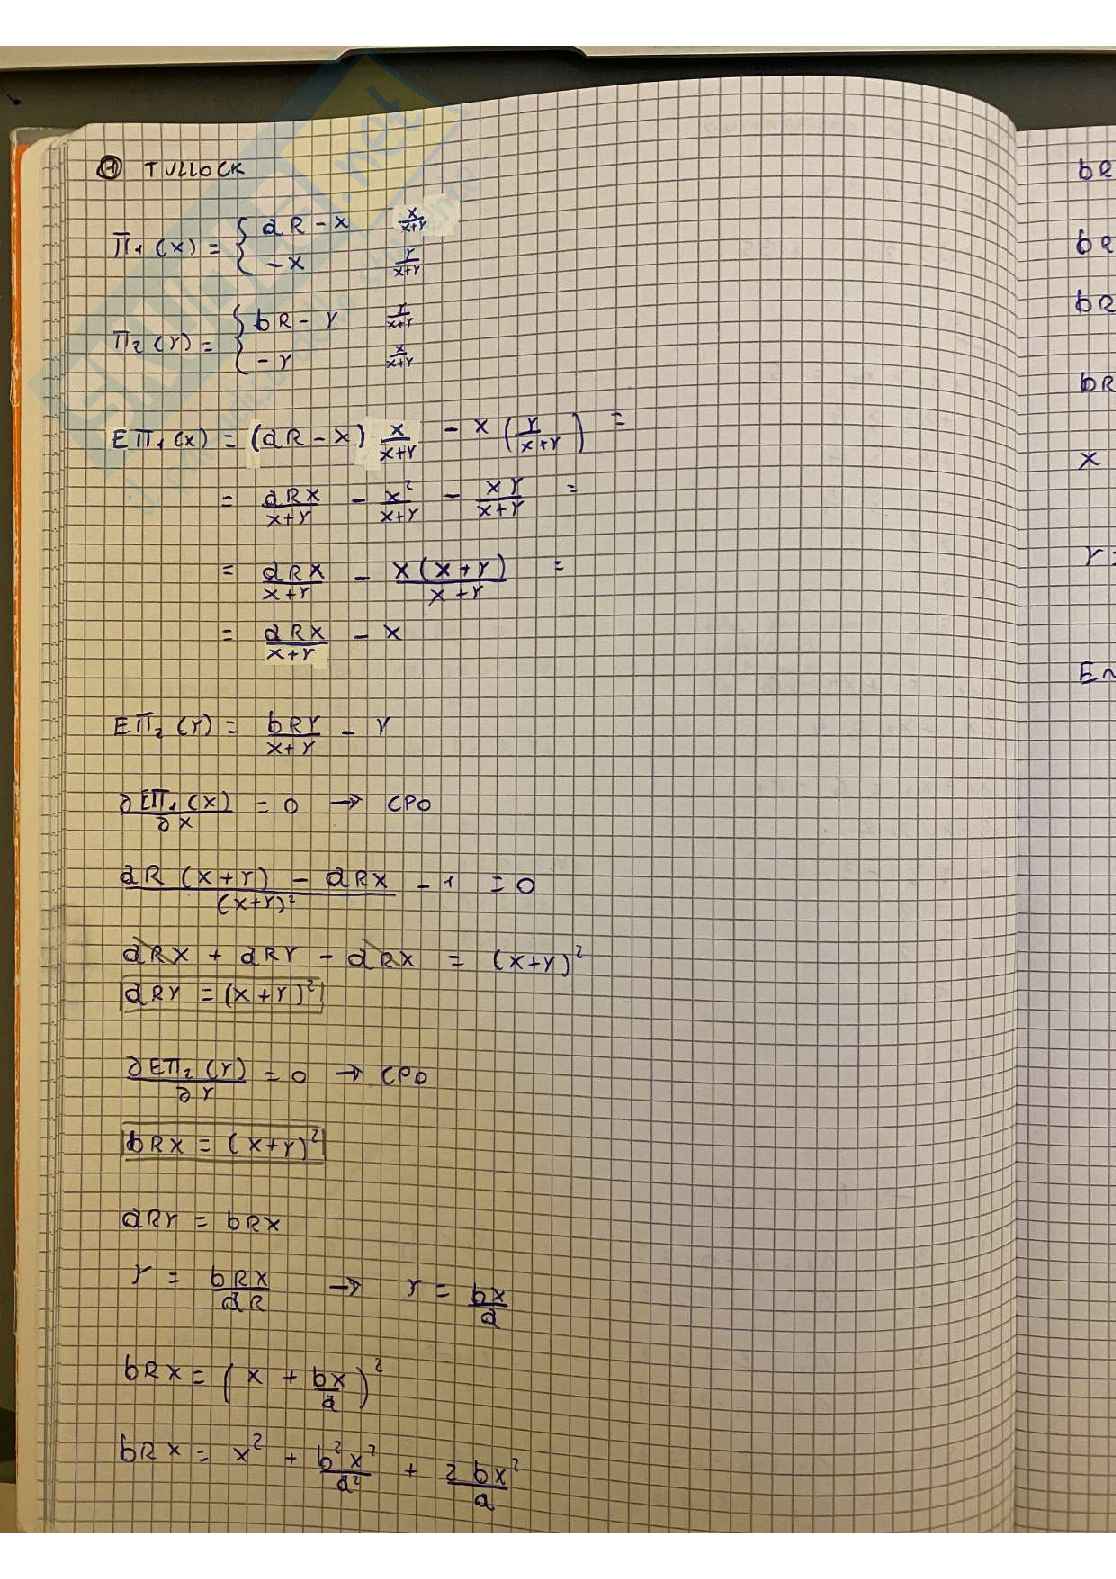 ① TULLOCK
π₁(x) = { aR - x    x/(x+y)
{ -x    y/(x+y)
π₂(y) = { bR - y    y/(x+y)
{ -y    x/(x+y)
Eπ₁(x) = (aR - x) x/(x+y) - x (y/(x+y)) =
= aRx/(x+y) - x²/(x+y) - xy/(x+y) =
= aRx/(x+y) - x(x+y)/(x+y) =
= aRx/(x+y) - x
Eπ₂(y) = bRy/(x+y) - y
∂Eπ₁(x)/∂x = 0 → CPO
(aR(x+y) - aRx)/(x+y)² - 1 = 0
aRx + aRy - aRx = (x+y)²
aRy = (x+y)²
∂Eπ₂(y)/∂y = 0 → CPO
bRx = (x+y)²
aRy = bRx
y = bRx/aR → y = bx/a
bRx = (x + bx/a)²
bRx = x² + b²x²/a² + 2bx²/a
bR
bR
bR
bR
x
y =